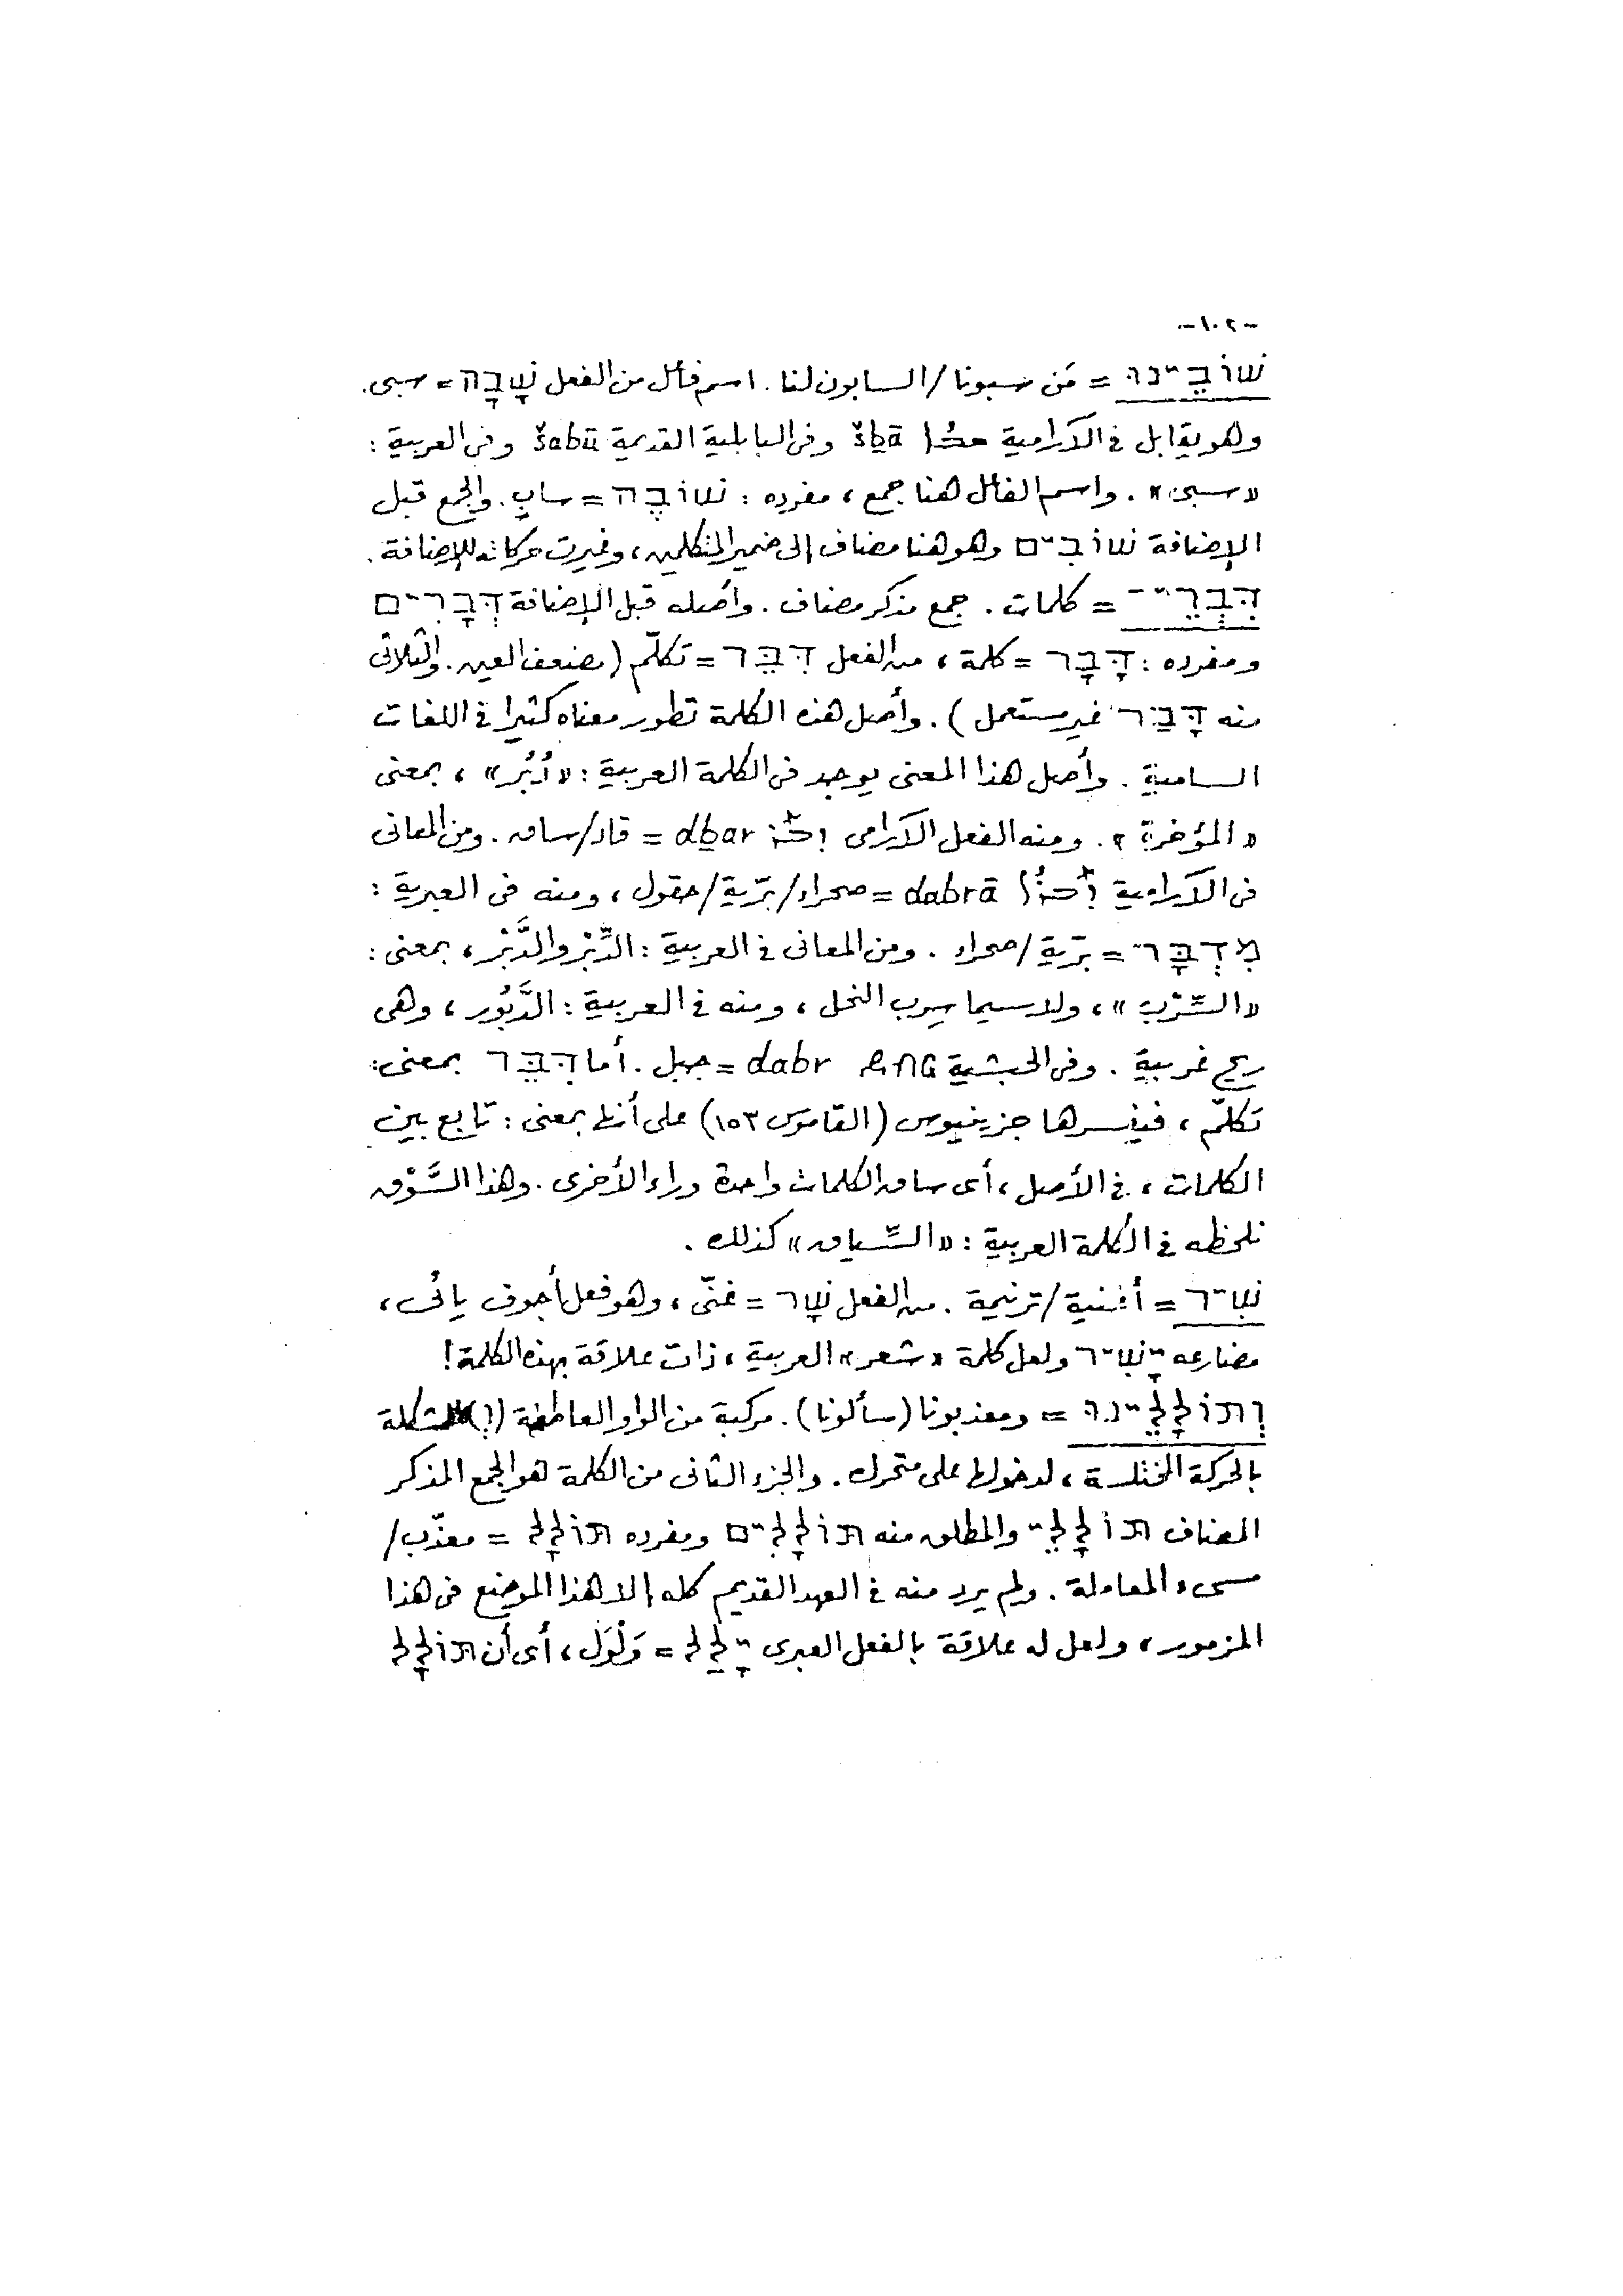 -١٠٢-
שׁוֹבֵינוּ = مَن سبونا/السابون لنا. اسم فاعل من الفعل שָׁבָה = سبى.
وهو يقابل فى الآرامية ܫܒܳܐ šḇā وفى البابلية القديمة šabū وفى العربية:
«سبى». واسم الفاعل هنا جمع، مفرده: שׁוֹבֶה = سابٍ. والجمع قبل
الإضافة שׁוֹבִים وهو هنا مضاف إلى ضمير المتكلمين، وغيرت حركاته للإضافة.
דִּבְרֵי = كلمات. جمع مذكر مضاف. وأصله قبل الإضافة דְּבָרִים
ومفرده: דָּבָר = كلمة، من الفعل דִּבֵּר = تكلّم (مضعف العين. والثلاثى
منه דָּבַר غير مستعمل). وأصل هذه الكلمة تطور معناه كثيرا فى اللغات
السامية. وأصل هذا المعنى يوجد فى الكلمة العربية: «دُبُر»، بمعنى
«المؤخرة». ومنه الفعل الآرامى ܕܒܰܪ dḇar = قاد/ساق. ومن المعانى
فى الآرامية ܕܰܒܪܳܐ dabrā = صحراء/برّية/حقول، ومنه فى العبرية:
מִדְבָּר = برّية/صحراء. ومن المعانى فى العربية: الدِّبْر والدَّبْر، بمعنى:
«السِّرْب»، ولاسيما سِرب النحل، ومنه فى العربية: الدَّبُور، وهى
ريح غربية. وفى الحبشية ደብር dabr = جبل. أما דִּבֵּר بمعنى:
تكلّم، فيفسرها جزينيوس (القاموس ١٥٣) على أنها بمعنى: تابع بين
الكلمات، فى الأصل، أى ساق الكلمات واحدة وراء الأخرى. وهذا السَّوْق
نلحظه فى الكلمة العربية: «السِّياق» كذلك.
שִׁיר = أغنية/ترنيمة. من الفعل שָׁר = غنّى، وهو فعل أجوف يائى،
مضارعه יָשִׁיר ولعل كلمة «شعر» العربية، ذات علاقة بهذه الكلمة!
וְתוֹלָלֵינוּ = ومعذبونا (سألونا). مركبة من الواو العاطفة (וְ) المشكلة
بالحركة المختلسة، لدخولها على متحرك. والجزء الثانى من الكلمة هو الجمع المذكر
المضاف תוֹלָלֵי والمطلق منه תוֹלָלִים ومفرده תוֹלָל = معذّب/
مسىء المعاملة. ولم يرد منه فى العهد القديم كله إلا هذا الموضع فى هذا
المزمور، ولعل له علاقة بالفعل العبرى יָלַל = وَلْوَل، أى أن תוֹלָל